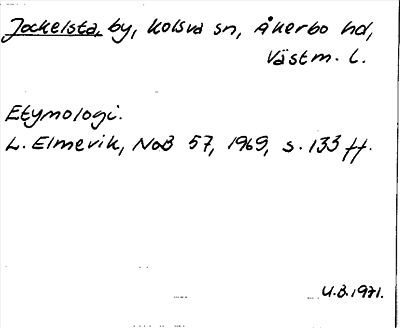 Jockelsta, by, Kolsva sn, Åkerbo hd,
Västm. l.
Etymologi.
L. Elmevik, NoB 57, 1969, s. 133 ff.
U.B. 1971.